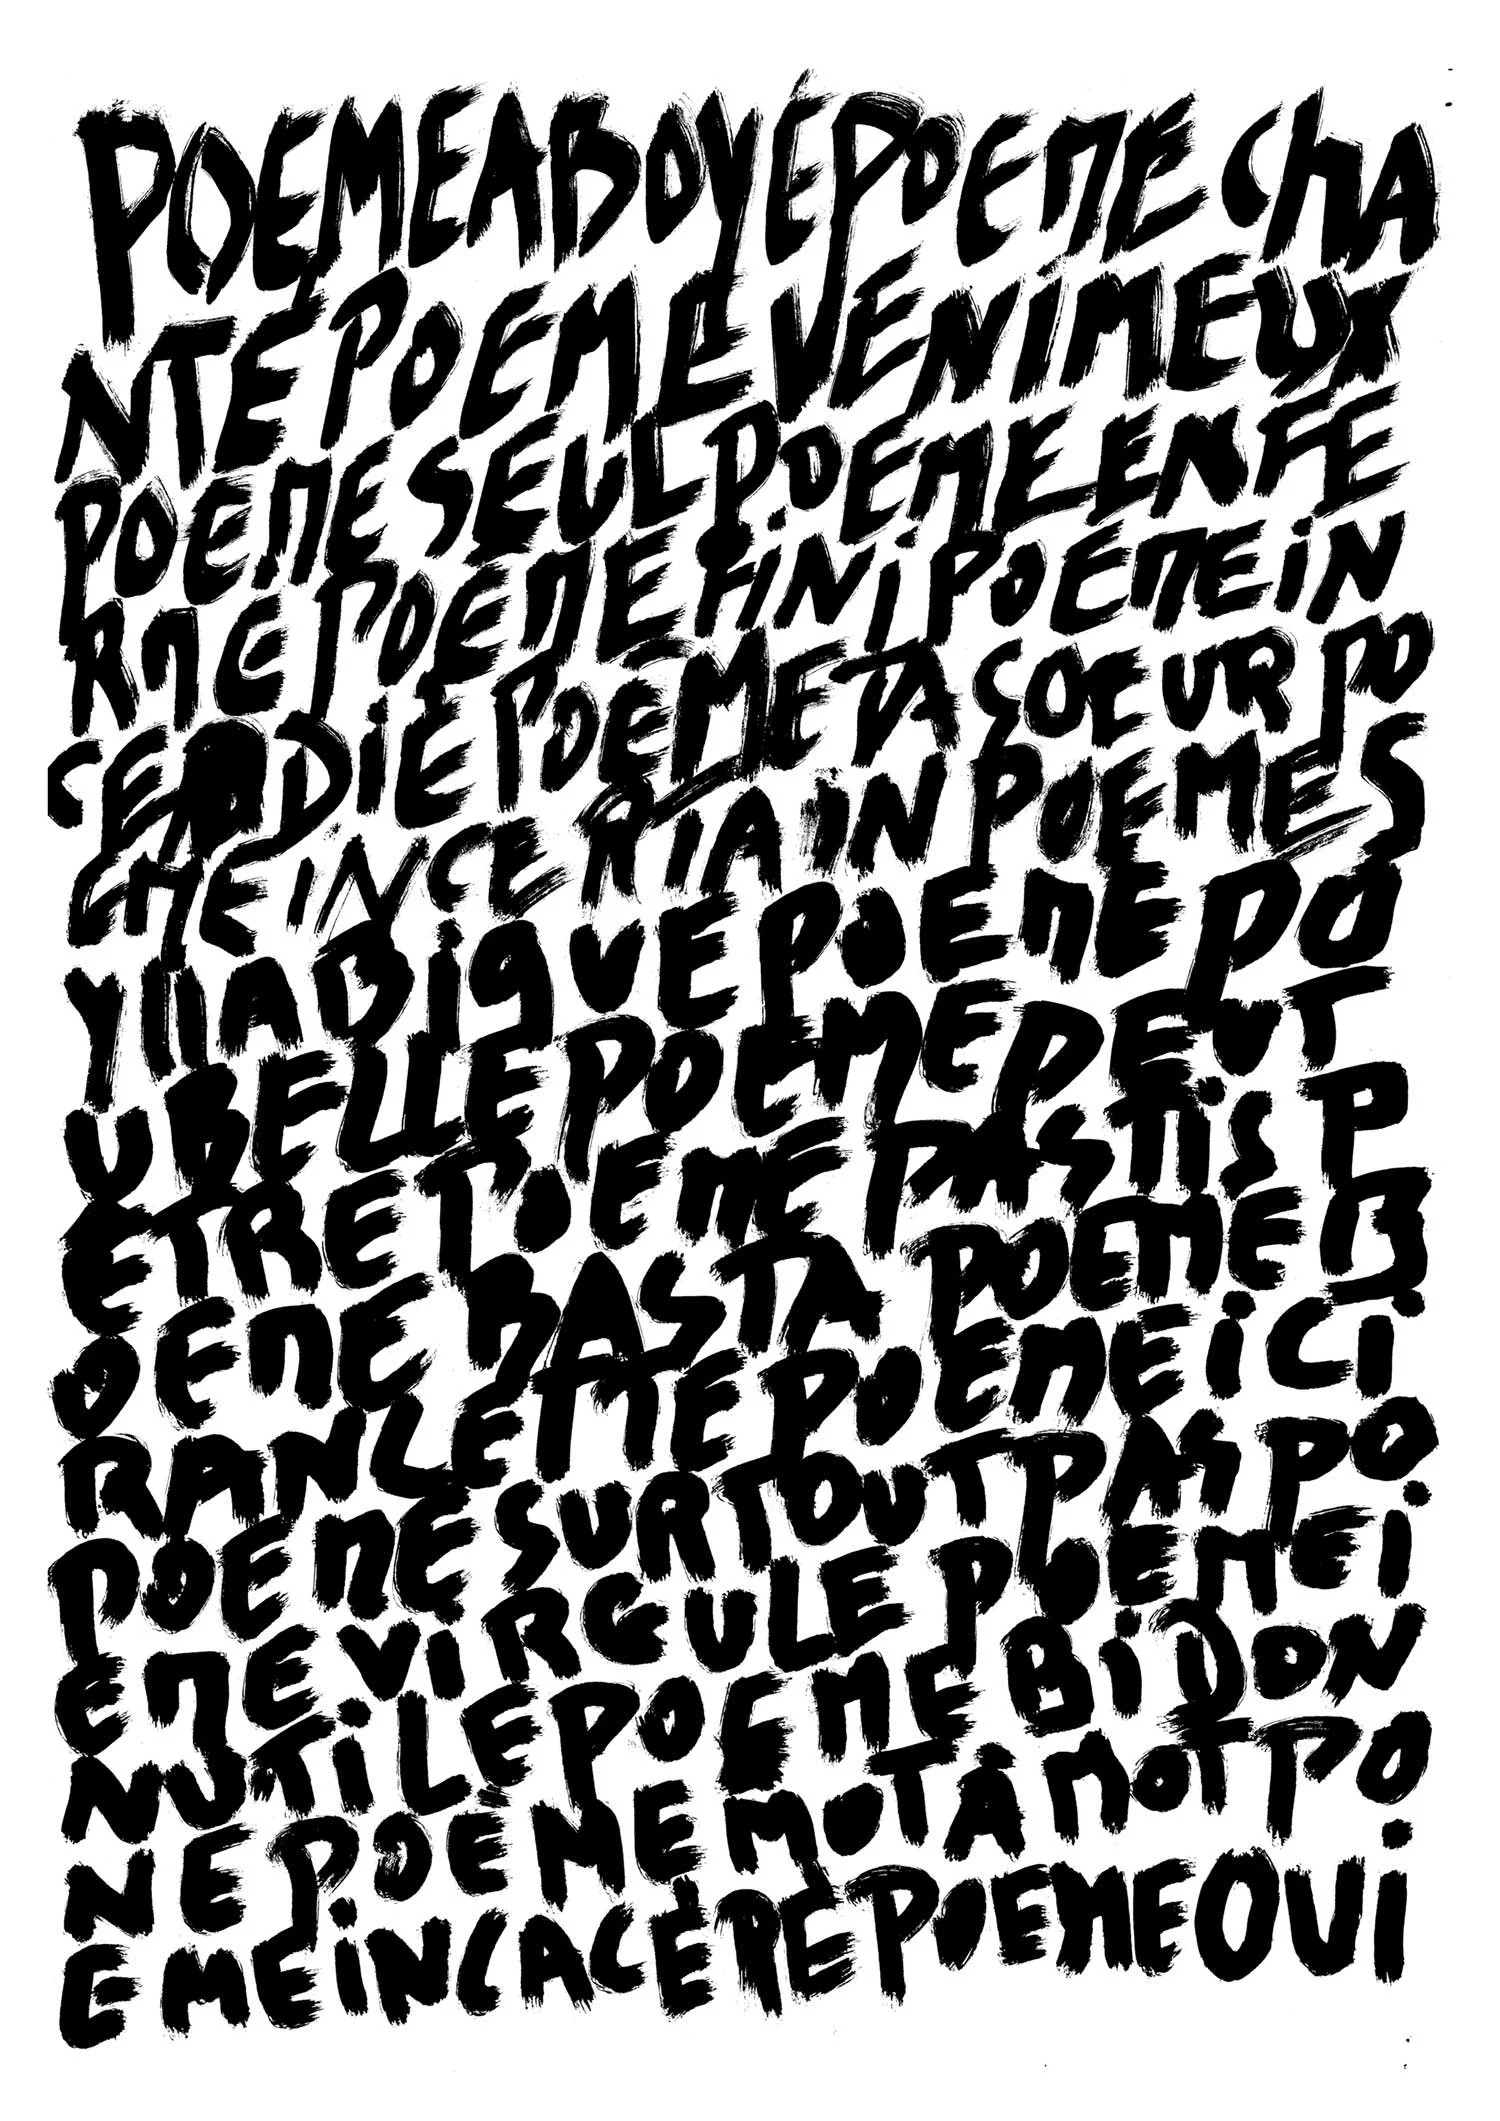 POEMEABOYÉPOEMECHA
NTEPOEMEVENIMEUX
POEMESEULPOEMEENFE
RMÉPOEMEFINIPOEMEIN
CENDIÉPOEMETASOEURPO
EMEINCERTAINPOEMES
YLLABIQUEPOEMEPO
UBELLEPOEMEPEUT
ETREPOEMEPASTISP
OEMEBASTAPOEMEB
RANLEMEPOEMEICI
POEMESURTOUTPASPO
EMEVIRGULEPOEMEI
NUTILEPOEMEBIDON
NEPOEMEMOTÀMOTPO
EMEINCACÉRÉPOEMEOUI